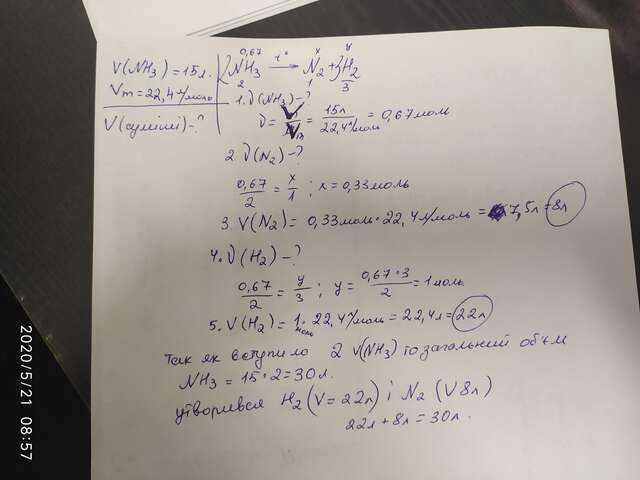 V(NH3) = 15л.
Vm = 22,4 л/моль
V(суміші) - ?
0,67 x y
2NH3 —t°→ N2 + 3H2
2 1 3
1. ν(NH3) - ?
ν = V/Vm = 15л/22,4 л/моль = 0,67 моль
2. ν(N2) - ?
0,67/2 = x/1 ; x = 0,33 моль
3. V(N2) = 0,33 моль · 22,4 л/моль = 7,5л = 8л
4. ν(H2) - ?
0,67/2 = y/3 ; y = 0,67·3/2 = 1 моль
5. V(H2) = 1 моль · 22,4 л/моль = 22,4л = 22л
Так як вступило 2 V(NH3) то загальний обьм
NH3 = 15 · 2 = 30 л.
утворився H2 (V = 22л) і N2 (V 8л)
22л + 8л = 30л.
2020/5/21 08:57